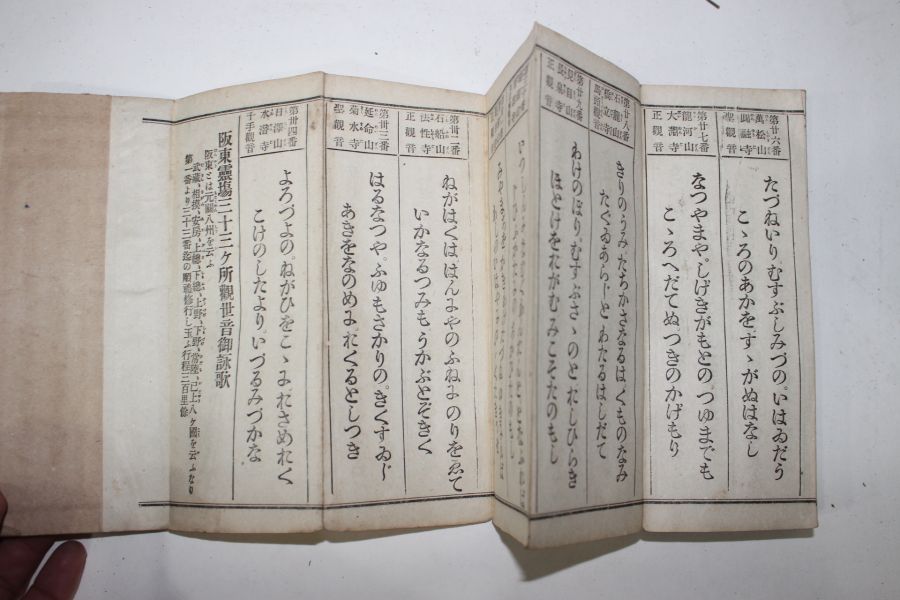 第廿六番
萬松山
圓融寺
聖觀音
たづねいり。むすぶしみづの。いはゐだう
こゝろのあかを。すゝがぬはなし
第廿七番
龍河山
大淵寺
正觀音
なつやまや。しげきがもとの。つゆまでも
こゝろへだてぬ。つきのかげもり
第廿八番
石龍山
橋立寺
馬頭觀音
きりのうみたちかさなるはくものなみ
たぐゐあらじとわたるはしだて
第廿九番
見目山
長泉寺
正觀音
わけのぼり。むすぶさゝのとおしひらき
ほとけをおがむみこそたのもし
第卅二番
石船山
法性寺
正觀音
ねがはくははんにやのふねにのりをゑて
いかなるつみもうかぶとぞきく
第卅三番
延命山
菊水寺
聖觀音
はるなつや。ふゆもさかりの。きくすゐじ
あきをなのめに。おくるとしつき
第卅四番
日澤山
水潜寺
千手觀音
よろづよの。ねがひをこゝにおさめおく
こけのしたより。いづるみづかな
阪東靈場三十三ヶ所觀世音御詠歌
阪東とは元關八州を云ふ
武藏、相摸、安房、上總、下總、上野、下野、常陸、已上八ヶ國を云ふなり
第一番より三十三番迄の順禮修行し玉ふ行程三百里餘